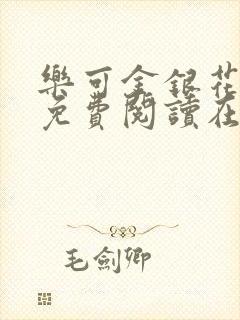 樂可金銀花
免費閱讀在
毛劍卿